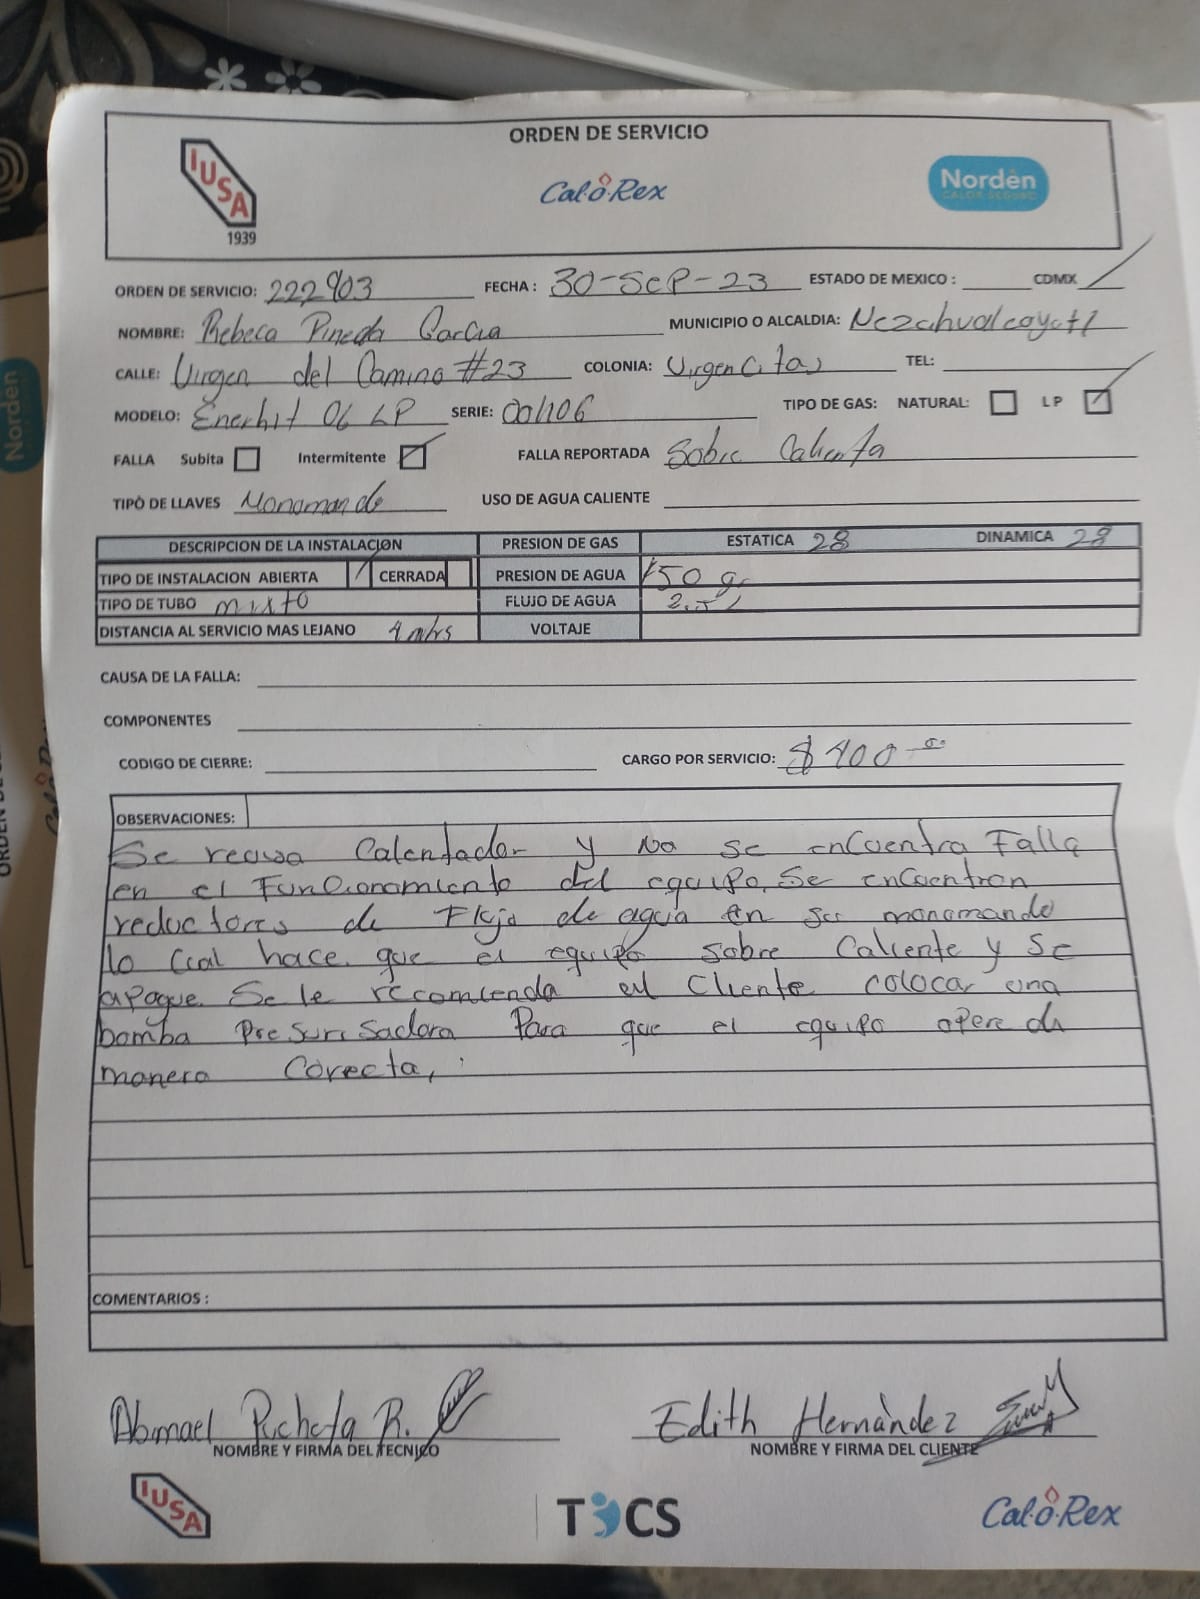 ORDEN DE SERVICIO
IUSA 1939 Cal-o-Rex Nordën CALOR SEGURO
ORDEN DE SERVICIO: 222903 FECHA: 30-SeP-23 ESTADO DE MEXICO: CDMX
NOMBRE: Rebeca Pineda Garcia MUNICIPIO O ALCALDIA: Nezahualcoyotl
CALLE: Virgen del Camino #23 COLONIA: Virgencitas TEL:
MODELO: Enerhit 06 LP SERIE: 001106 TIPO DE GAS: NATURAL: LP
FALLA Subita Intermitente FALLA REPORTADA Sobre Calienta
TIPO DE LLAVES Monomando USO DE AGUA CALIENTE
DESCRIPCION DE LA INSTALACION PRESION DE GAS ESTATICA 28 DINAMICA 28
TIPO DE INSTALACION ABIERTA CERRADA PRESION DE AGUA 150 gr
TIPO DE TUBO mixto FLUJO DE AGUA
DISTANCIA AL SERVICIO MAS LEJANO 4 mtrs VOLTAJE
CAUSA DE LA FALLA:
COMPONENTES
CODIGO DE CIERRE: CARGO POR SERVICIO: $ 400 00
OBSERVACIONES:
Se revisa Calentador y No se enCuentra Falla
en el FunCionamiento del equipo, Se enCuentran
reductores de Flujo de agua en su monomando
lo cual hace que el equipo Sobre Caliente y Se
apague. Se le recomienda al Cliente colocar una
bomba PreSuriSadora Para que el equipo opere de
manera Corecta,
COMENTARIOS :
Abmael Pucheta R. Edith Hernández
NOMBRE Y FIRMA DEL TECNICO NOMBRE Y FIRMA DEL CLIENTE
IUSA TICS Cal-o-Rex
Nordën